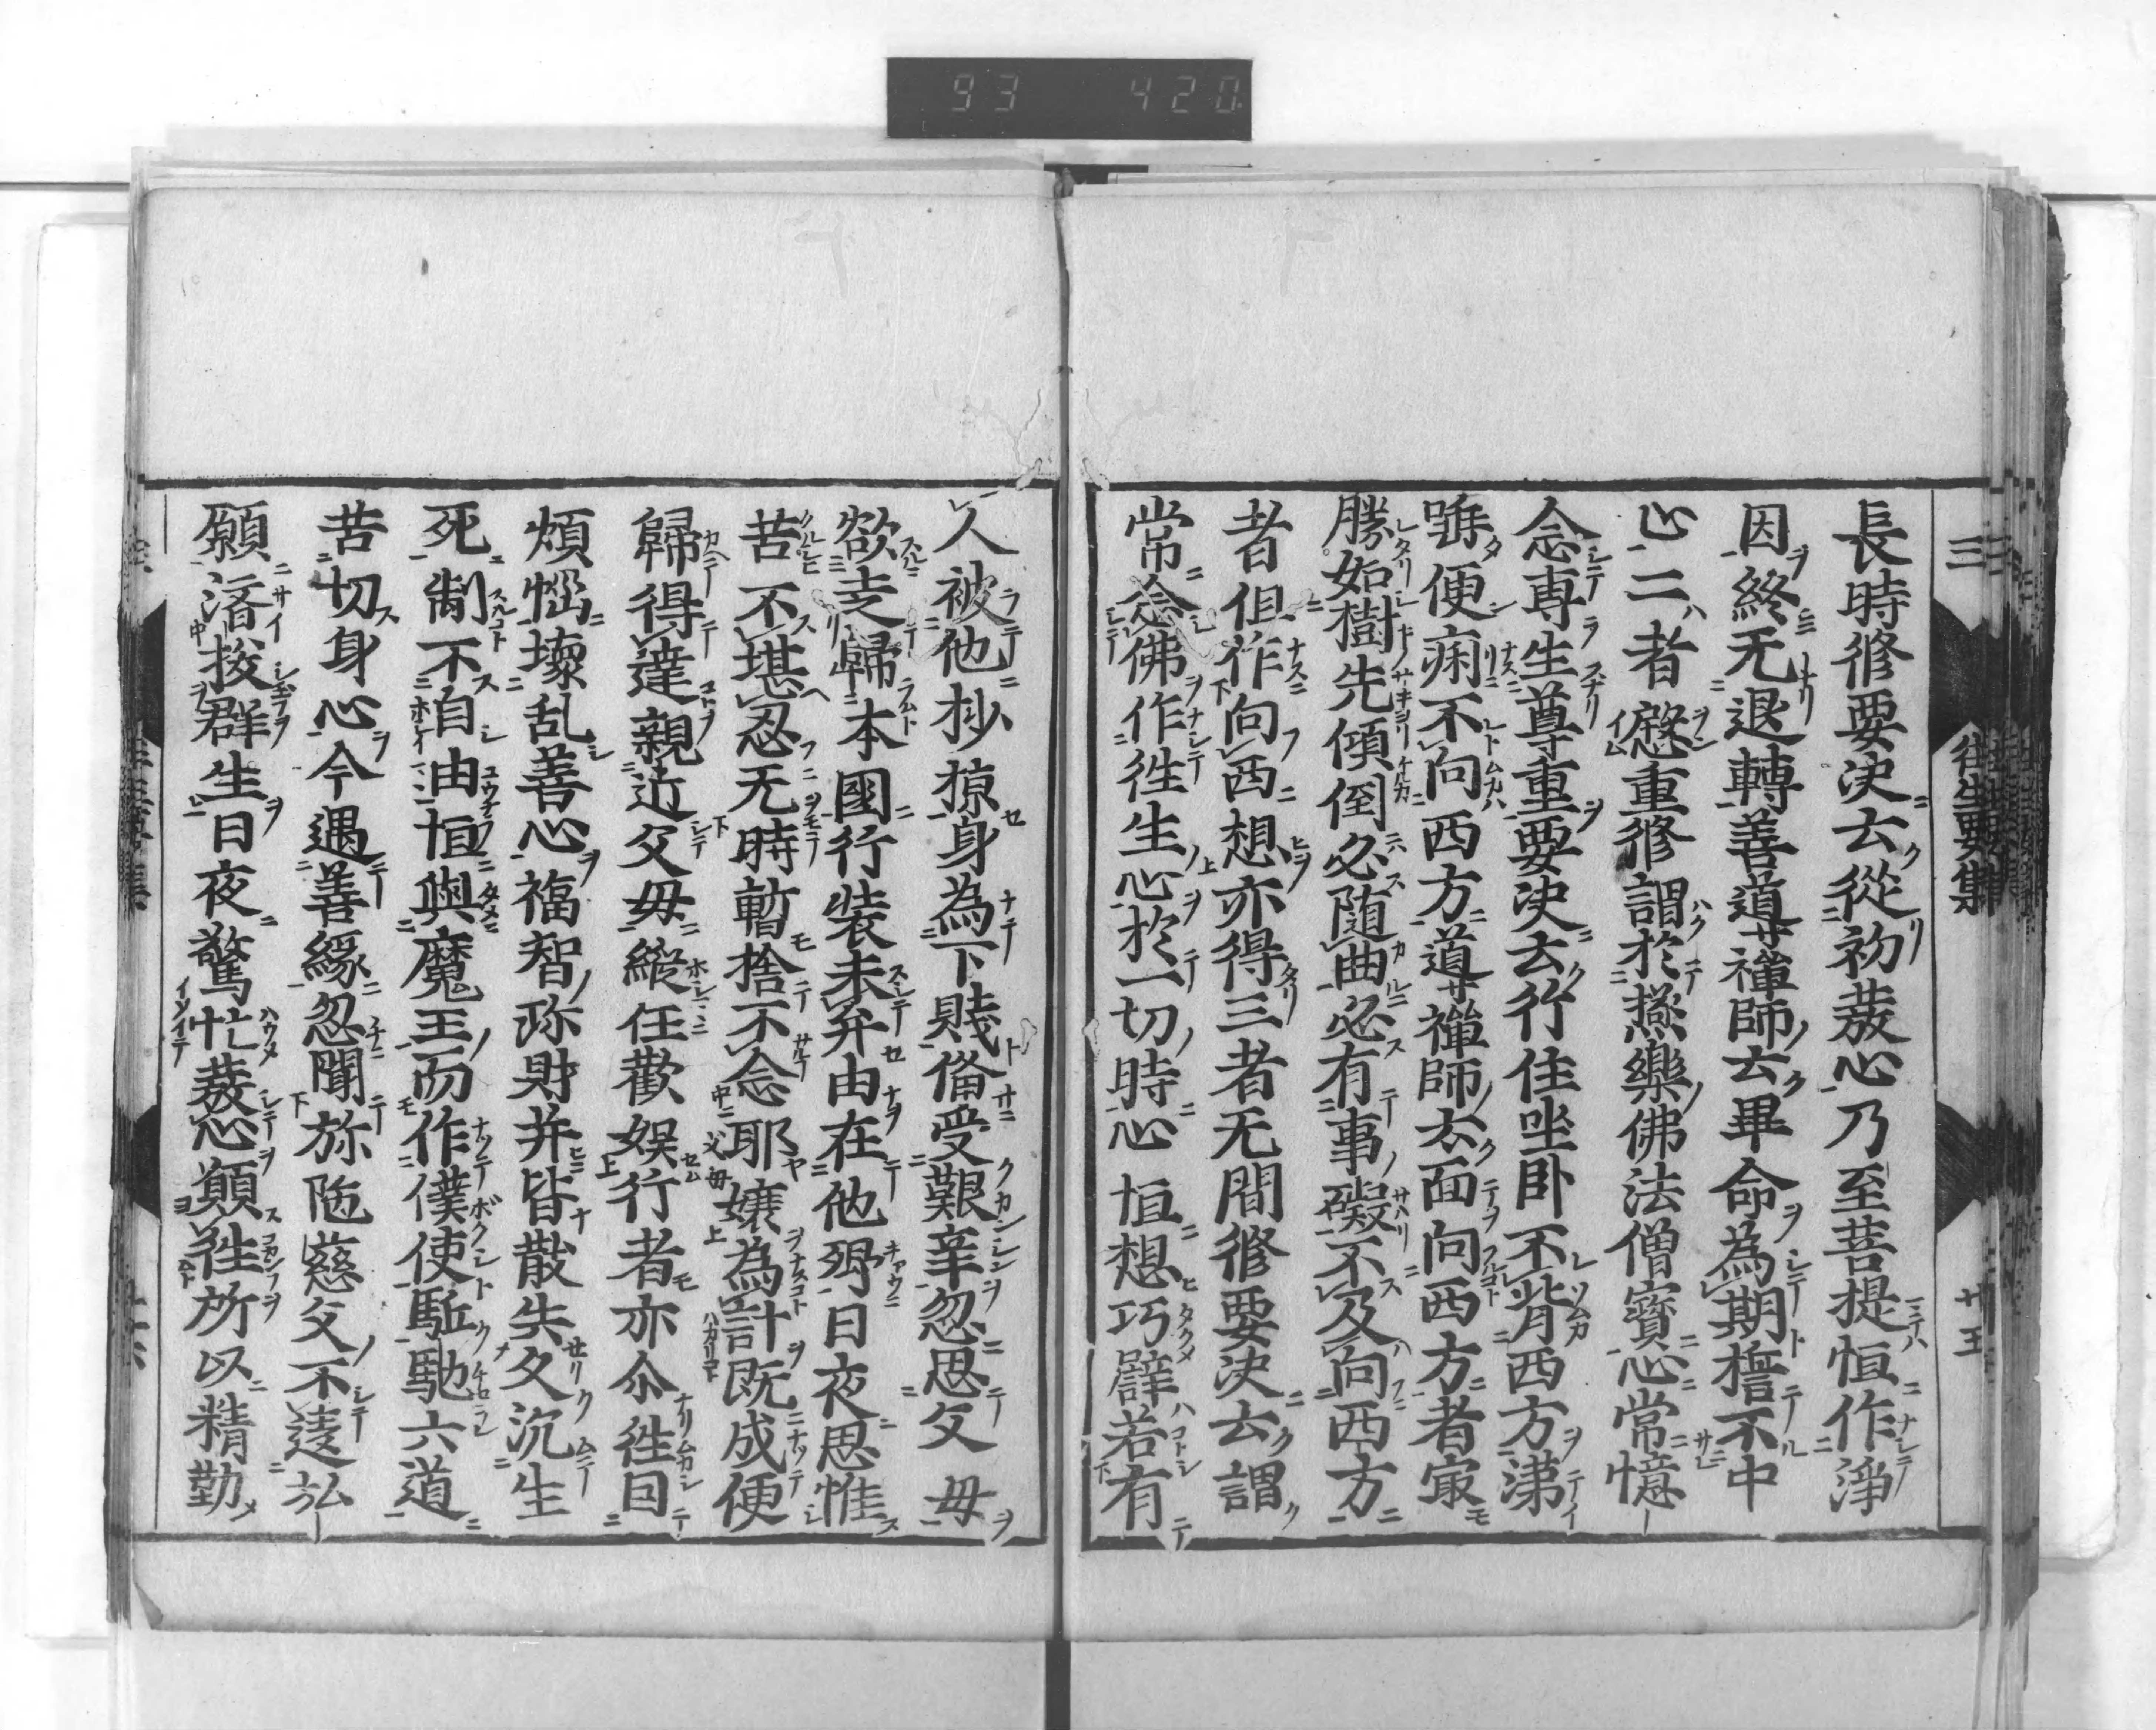 93 420
往生要集
廿五
長時修要決云從初發心乃至菩提恒作淨
因終无退轉善導禪師云畢命為期誓不中
心二者慇重修謂於極樂佛法僧寳心常憶
念專生尊重要決云行住坐卧不背西方涕
唾便痢不向西方導禪師云面向西方者㝡
勝如樹先傾倒必随曲必有事礙不及向西方
者但作向西想亦得三者无間修要決云謂
常念佛作徃生心於一切時心恒想巧譬若有
人被他抄掠身為下賤俻受艱辛忽思父母
欲走歸本國行裝未弁由在他郷日夜思惟
苦不堪忍无時暫捨不念耶嬢為計既成便
歸得達親近父毋縱任歡娯行者亦尒徃因
煩惱壞乱善心福智珎財并皆散失久沉生
死制不自由恒與魔王而作僕使駈馳六道
苦切身心今遇善緣忽聞弥陁慈父不違弘
願済拔群生日夜驚忙發心願徃所以精勤